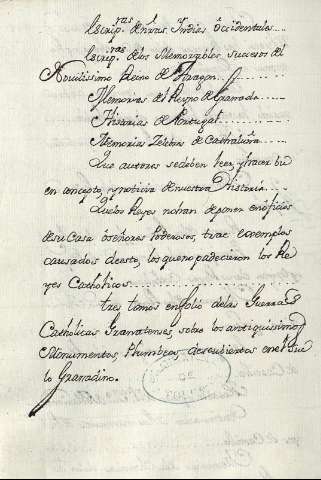 Escrip.ras de nras Indias occidentales
Escrip.ras de los Memorables sucesos del
Novilisimo Reino de Aragon
Memorias del Reyno de Granada
Historias de Portugal
Memorias de Cathaluña
Que autores se deben leer, y hacer bu
en concepto, y noticia de nuestra Historia
Que los Reyes no han de poner en oficios
de su Casa à señores Poderosos, trae exemplos
causados de esto, los que no padecieron los Re
yes Catholicos
tres tomos en folio de las Guerras
Catholicas Granatenses, sobre los antiquissimos
Monumentos, Plumbeos, descubiertos en el Sue
lo Granadino.